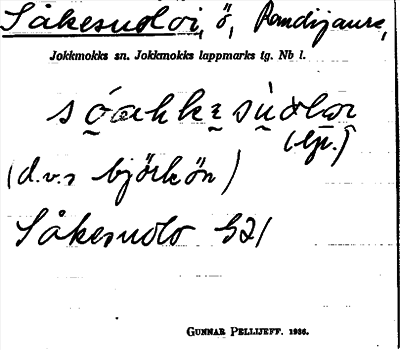 Såkesuoloi, ö, Randijaure,
Jokkmokks sn. Jokkmokks lappmarks tg. Nb l.
sóahkesùoloi
(lp.)
(d.v.s björkön)
Såkesuolo G21
GUNNAR PELLIJEFF. 1936.